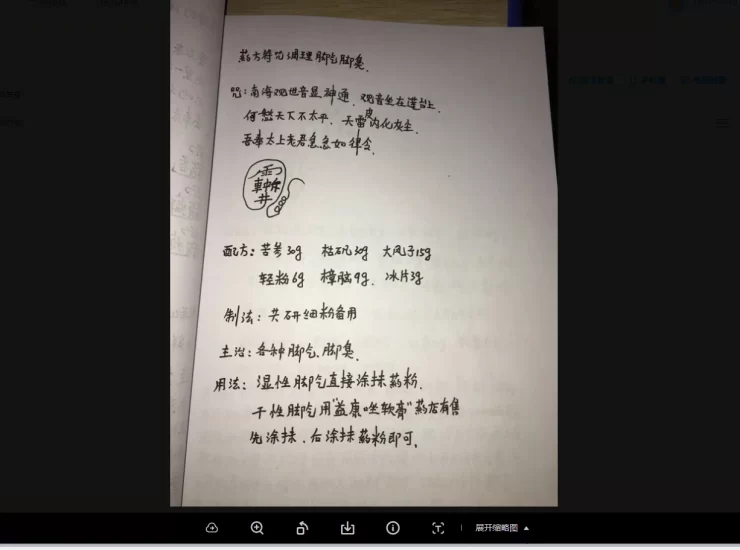 药方符咒调理脚气脚臭.
咒:南海观世音显神通.观音坐在莲台上.
何愁天下不太平.天雷皮内化灰尘.
吾奉太上老君急急如律令.
配方:苦参30g 枯矾30g 大风子15g
轻粉6g 樟脑9g.冰片3g
制法:共研细粉备用
主治:各种脚气.脚臭.
用法:湿性脚气直接涂抹药粉.
干性脚气用"益康唑软膏"药店有售
先涂抹.后涂抹药粉即可.
展开缩略图